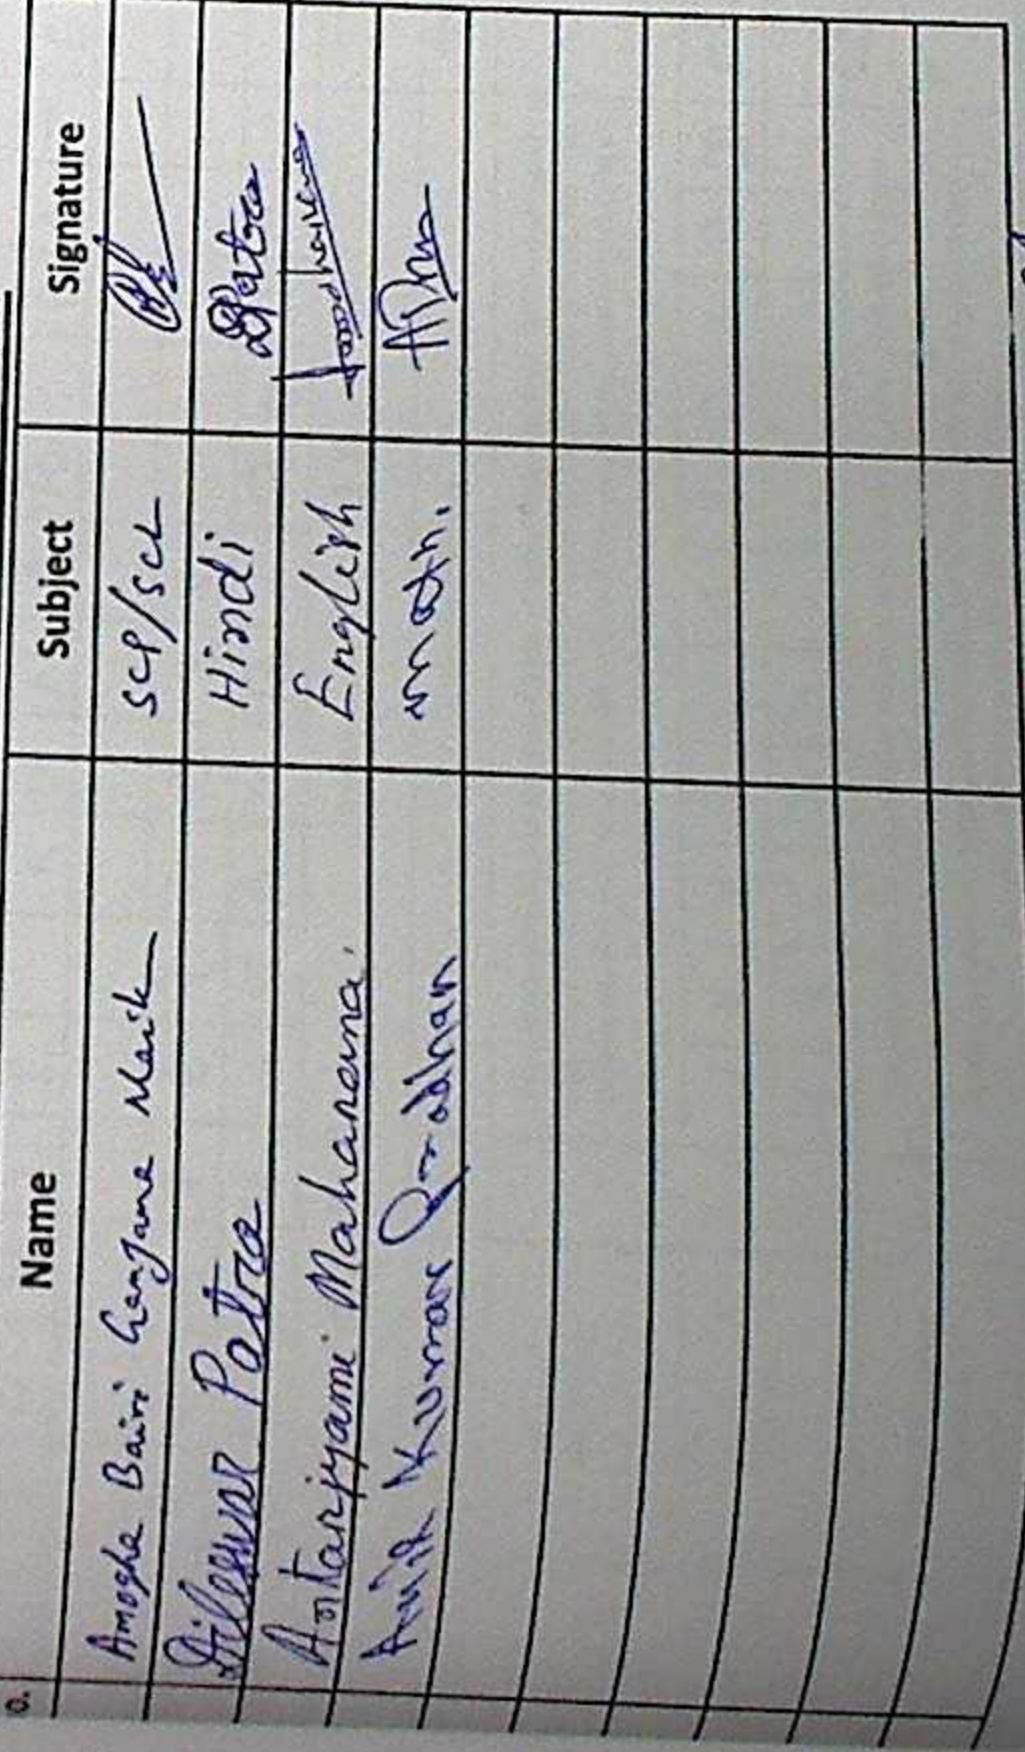 o. Name Subject Signature
Amogha Bairi Ganjana Naik SCP/SCL
Dileswar Patra Hindi DPatra
Antarjyami Mahanana English
Amit Kumar Pradhan math.